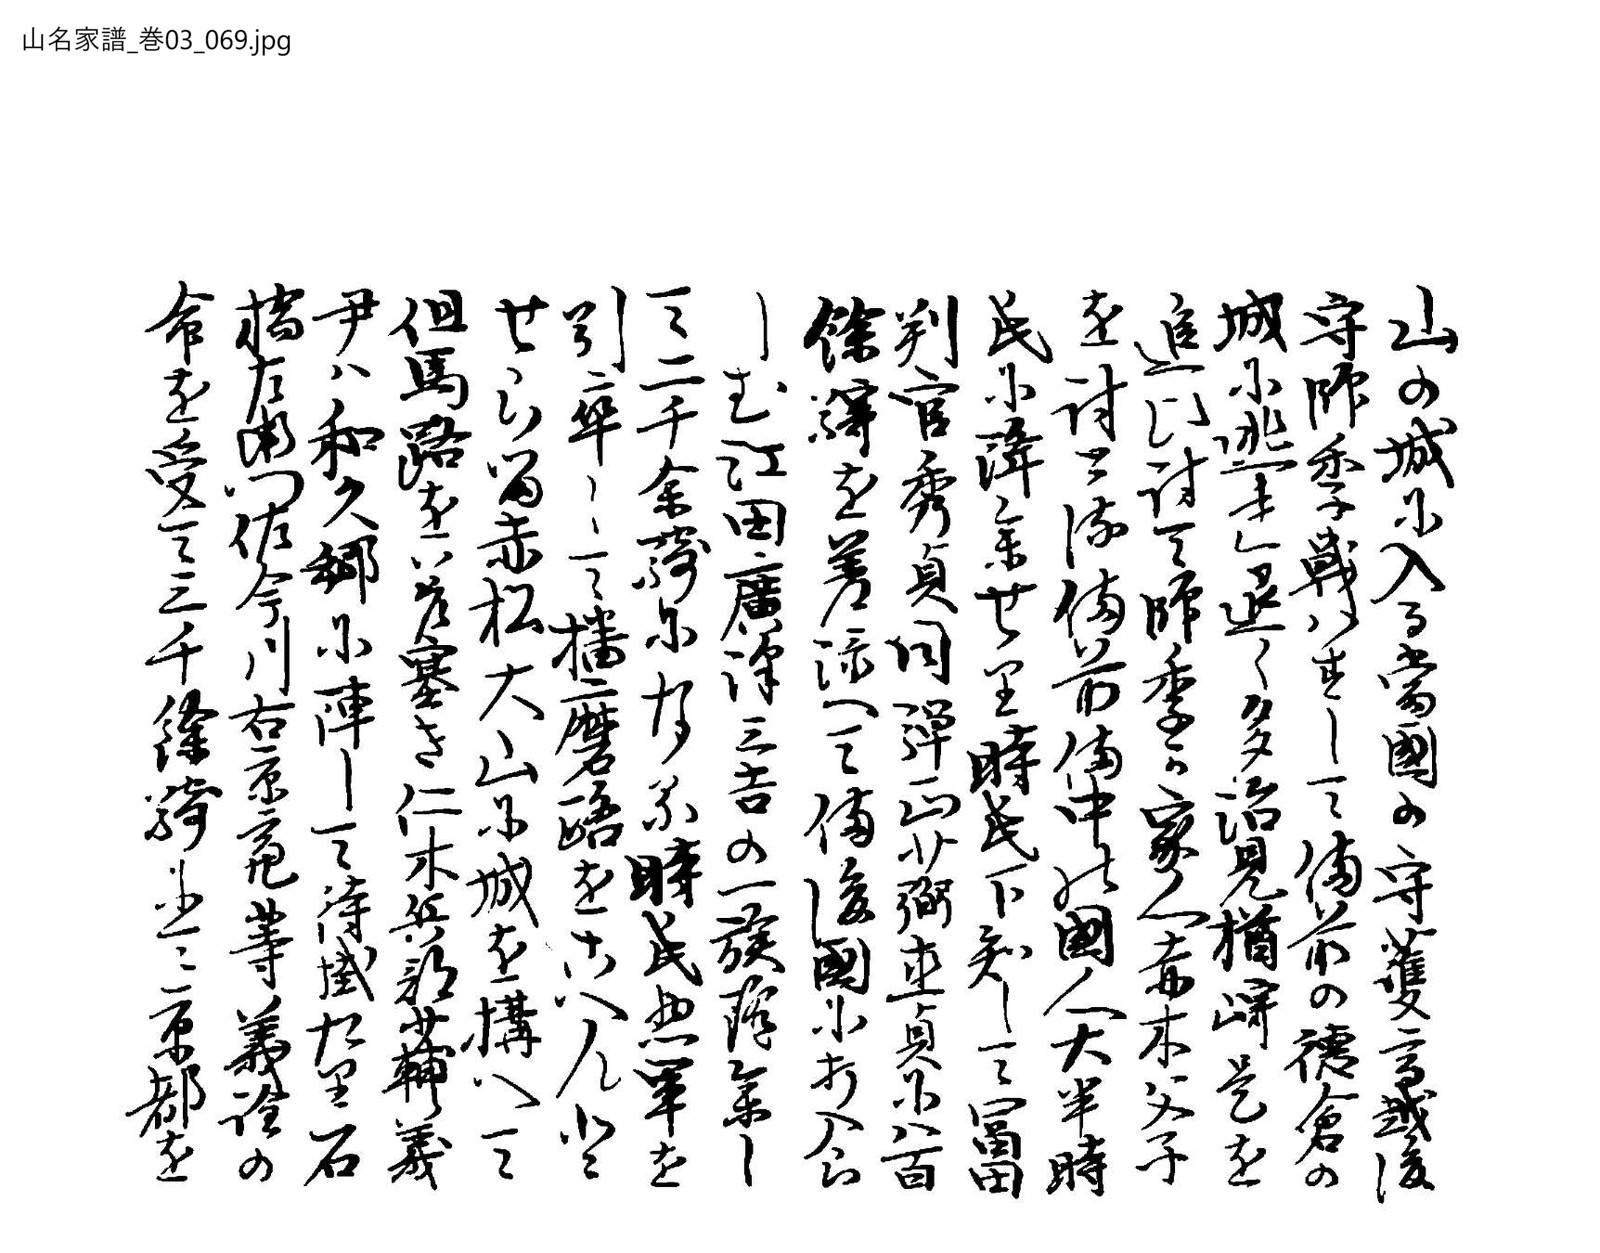 山名家譜_巻03_069.jpg
山の城に入る當國の守護高越後
守師季戦はすして備前の徳倉の
城に迯率し退く多治見楢﨑是を
追ひ討て師季か家人赤木父子
を討とる備前備中の國人大半時
氏に降參せり時氏下知して冨田
判官秀貞同弾正少弼直貞に八百
餘騎を差添へて備後國に打入ら
しむ江田廣澤三吉の一族降參し
て二千余騎になる時氏惣軍を
引率して播磨路をさへんと
せらる赤松大山に城を構へて
但馬路を差塞き仁木兵部少輔義
尹は和久郷に陣して待掛たり石
橋左衛門佐今川右京亮等義詮の
命を受て三千餘騎にて京都を